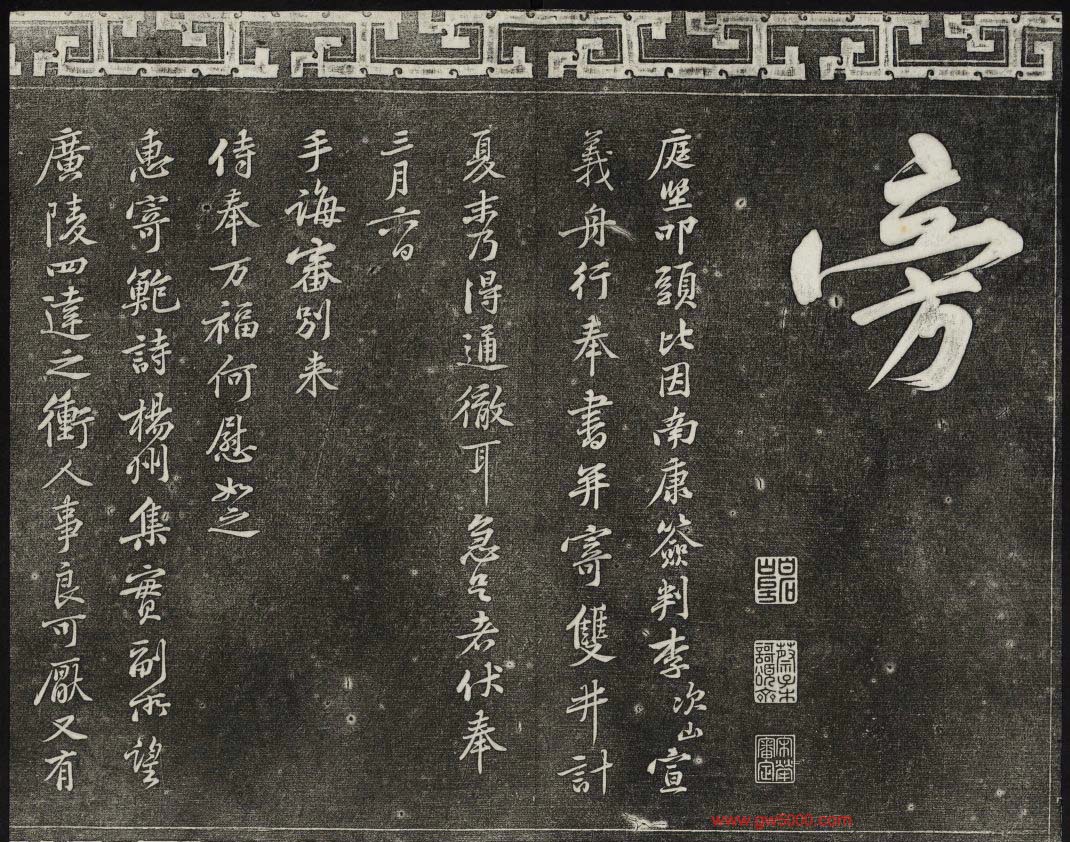 旁
庭堅叩頭比因南康簽判李次山宣
義舟行奉書并寄雙井計
夏末乃得通徹耳急足者伏奉
三月六日
手誨審別來
侍奉万福何慰如之
惠寄鮑詩楊州集實副所望
廣陵四達之衝人事良可厭又有
www.gw5000.com